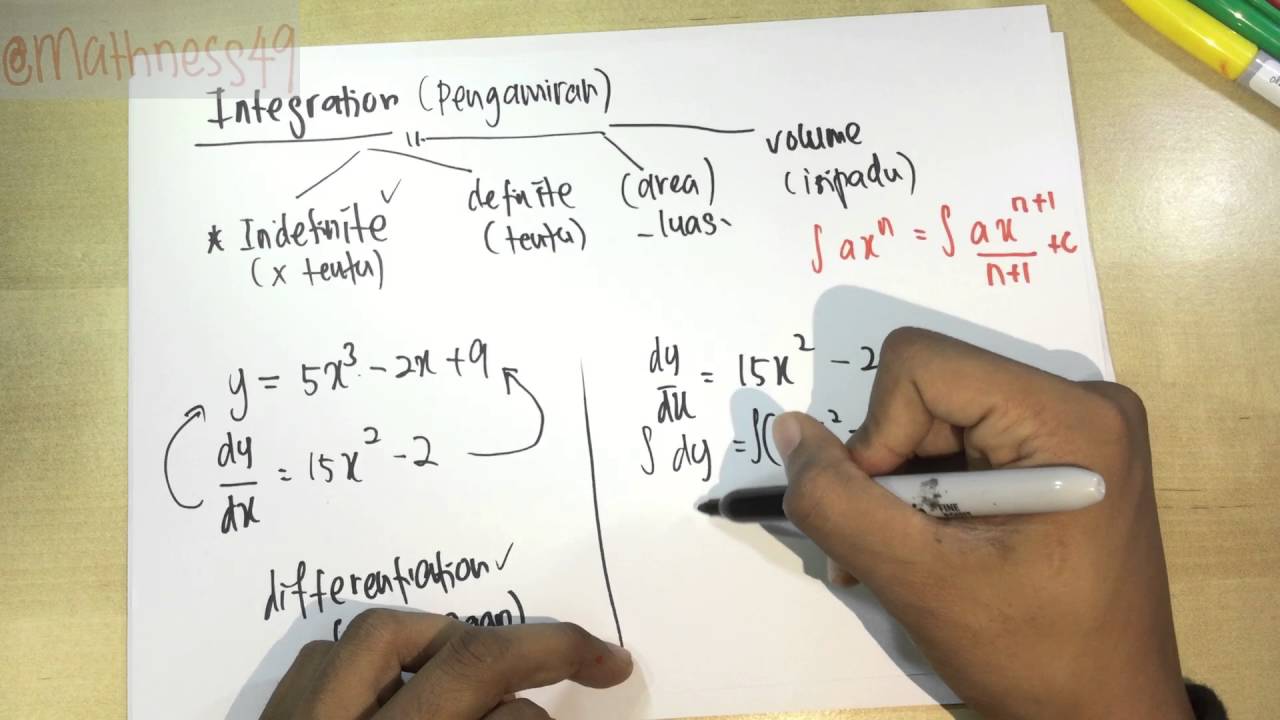 @mathness49
Integration (pengamiran)
* Indefinite ✓
(x tentu)
definite
(tentu)
(area)
- luas
volume
(isipadu)
∫ ax^n = ∫ ax^(n+1)/(n+1) + c
y = 5x³ - 2x + 9
dy/dx = 15x² - 2
differentiation ✓
dy/dx = 15x² - 2
∫ dy = ∫(
FINE